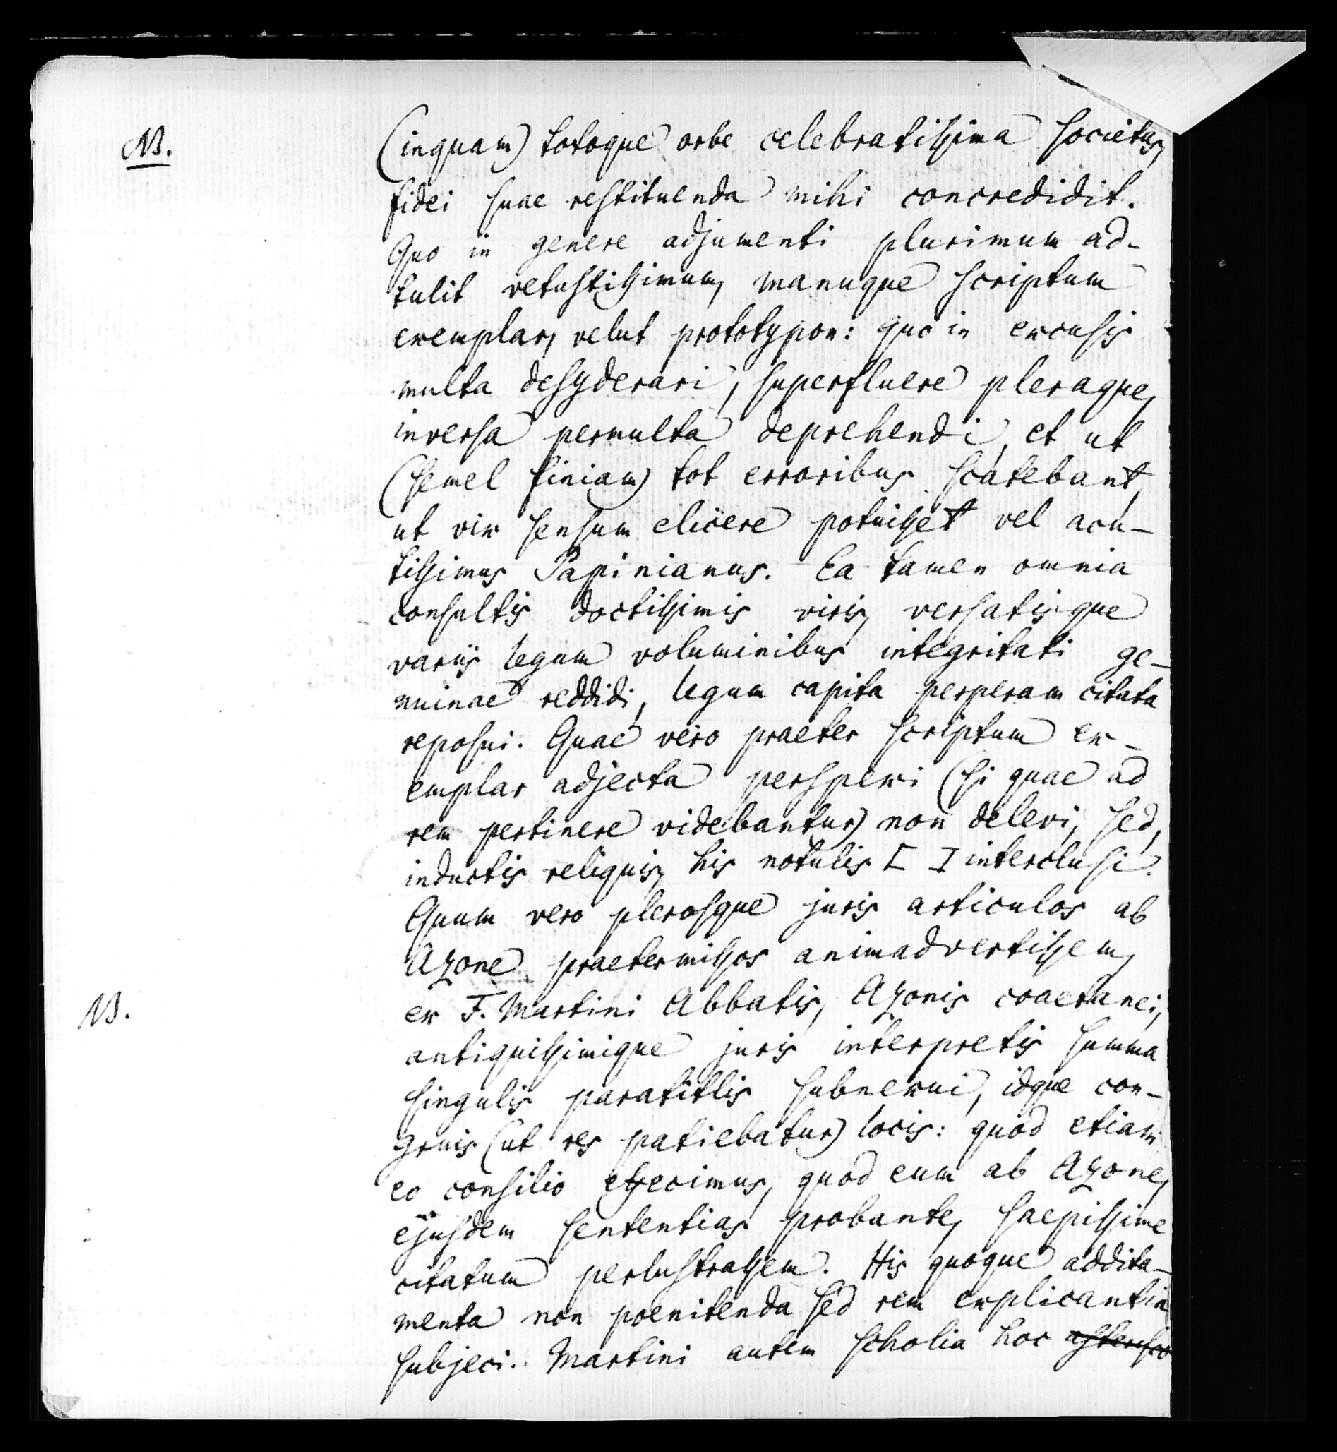 NB.
(inquam) totoque orbe celebratissima societas,
fidei suae restituenda mihi concredidit.
Quo in genere adjumenti plurimum ad-
tulit vetustissimum, manuque scriptum
exemplar, velut prototypon: quo in excusis
multa desyderari, superfluere pleraque,
inversa permulta deprehendi, et ut
(semel finiam) tot erroribus scatebant,
ut vix sensum elicere potuisset vel acu-
tissimus Papinianus. Ea tamen omnia
consultis doctissimis viris, versatisque
variis legum voluminibus integritati ge-
nuinae reddidi, legum capita perperam citata
reposui. Quae vero praeter scriptum ex-
emplar adjecta perspexi (si quae ad
rem pertinere videbantur) non delevi, sed,
inductis reliquis, his notulis [ ] interclusi.
Quum vero plerosque juris articulos ab
Azone praetermissos animadvertissem,
NB.
ex F. Martini Abbatis, Azonis coaetanei,
antiquissimique juris interpretis summa
singulis paratitlis subnexui, idque con-
gruis (ut res patiebatur) locis: quod etiam
eo consilio effecimus, quod eum ab Azone,
ejusdem sententias probante, saepissime
citatum perlustrassem. His quoque addita-
menta non poenitenda sed rem explicantia
subjeci. Martini autem scholia hoc asterisco